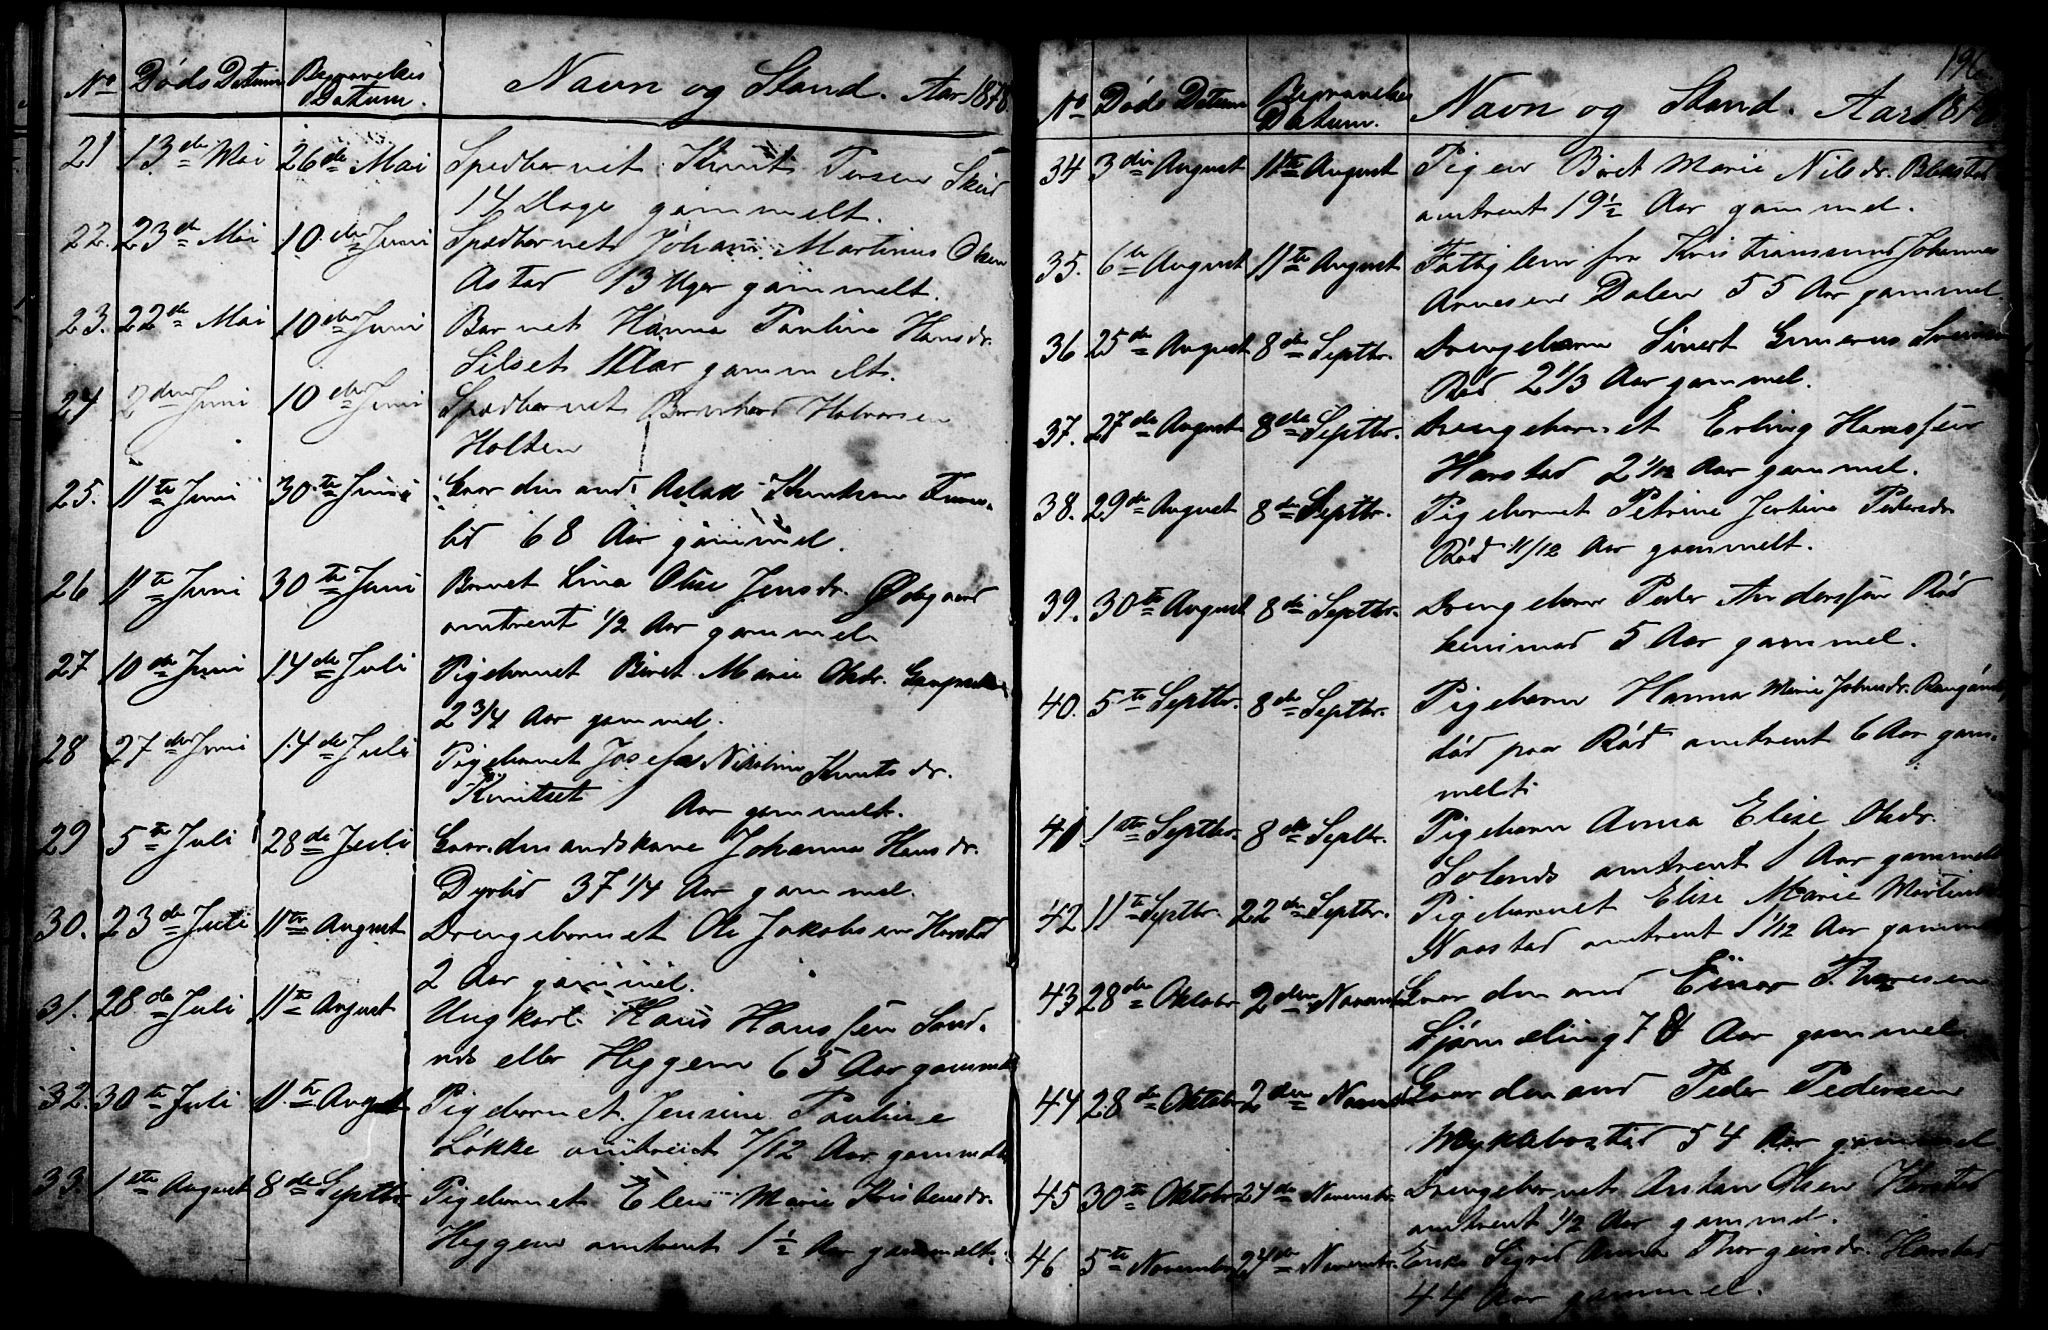 No Döds Datum Begravelses Datum. Navn og Stand. Aar 1878
21 13de Mai 26de Mai Spedbarnet Knut Iversen Skeid
14 Dage gammelt.
22. 23de Mai 10de Juni Spædbarnet Johan Martinus Olsen
Astad 13 Uger gammelt.
23. 22de Mai 10de Juni Barnet Hanna Pauline Hansdr.
Silset 1 Aar gammelt.
24 2den Juni 10de Juni Spædbarnet Bernhard Halvorsen
Holten
25. 11te Juni 30te Juni Gaardmand Aslak Knutsen
lid 68 Aar gammel.
26 11te Juni 30te Juni Barnet Lina Oline Jensdr. Ødegaard
omtrent 1/2 Aar gammel
27 10de Juni 14de Juli Pigebarnet Beret Marie Olsdr.
2 3/4 Aar gammel.
28 27de Juni 14de Juli Pigebarnet Josefa Nikoline Knutsdr.
Kvitset 1 Aar gammelt.
29 5te Juli 28de Juli Gaardmandskone Johanna Hansdr.
Dyrlid 37 1/4 Aar gammel.
30. 23de Juli 11te August Drengebarnet Ole Jakobsen Harstad
2 Aar gammel.
31. 28de Juli 11te August Ungkarl Hans Hanssen Sand-
nes eller Heggem 65 Aar gammel
32. 30te Juli 11te August Pigebarnet Jensine Pauline
Løkke omtrent 7/12 Aar gammelt
33. 1ste August 8de Septbr. Pigebarnet Elen Marie Kristensdr.
Heggem omtrent 1 1/2 Aar gammelt.
196
No Döds Datum Begravelses Datum. Navn og Stand. Aar 1878
34 3die August 11te August Pigen Beret Marie Nilsdr.
omtrent 19 1/2 Aar gammel.
35. 6te August 11te August Fattiglem fra Kristianssund Johannes
Arnesen Dalen 55 Aar gammel
36 25de August 8de Septbr. Drengebarn Sivert Gunerius
Rød 2 1/3 Aar gammel.
37. 27de August 8de Septbr. Drengebarnet Erling Hanssen
Harstad 2 1/12 Aar gammel.
38. 29de August 8de Septbr. Pigebarnet Petrine Jertine Pedersdr.
Rød 11/12 Aar gammelt.
39. 30te August 8de Septbr. Drengebarn Peder Andersen Rød
5 Aar gammel.
40. 5te Septbr. 8de Septbr. Pigebarn Hanna Marie Johnsdr.
død paa Rød omtrent 6 Aar gam-
melt
41. 1ste Septbr. 8de Septbr. Pigebarn Anna Elise Olsdr.
omtrent 1 Aar gammelt
42 11te Septbr. 22de Septbr. Pigebarnet Elise Marie
Naastad omtrent 1 1/12 Aar gammel
43 28de Oktobr 2den Novembr Gaardmand Einar
78 Aar gammel
44 28de Oktobr 2den Novembr Gaardmand Peder Pedersen
Myklebostad 54 Aar gammel
45 30te Oktobr 24de Novembr. Drengebarnet Anton Olsen Harstad
omtrent 1/2 Aar gammel.
46 5te November 24de Novembr. Enke Sigrid Anna Thorgeirsdr. Harstad
44 Aar gammel.